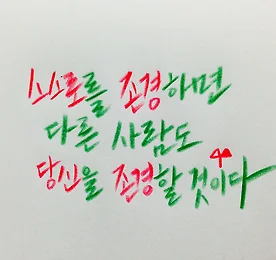 스스로를 존경하면
다른 사람도
당신을 존경할 것이다